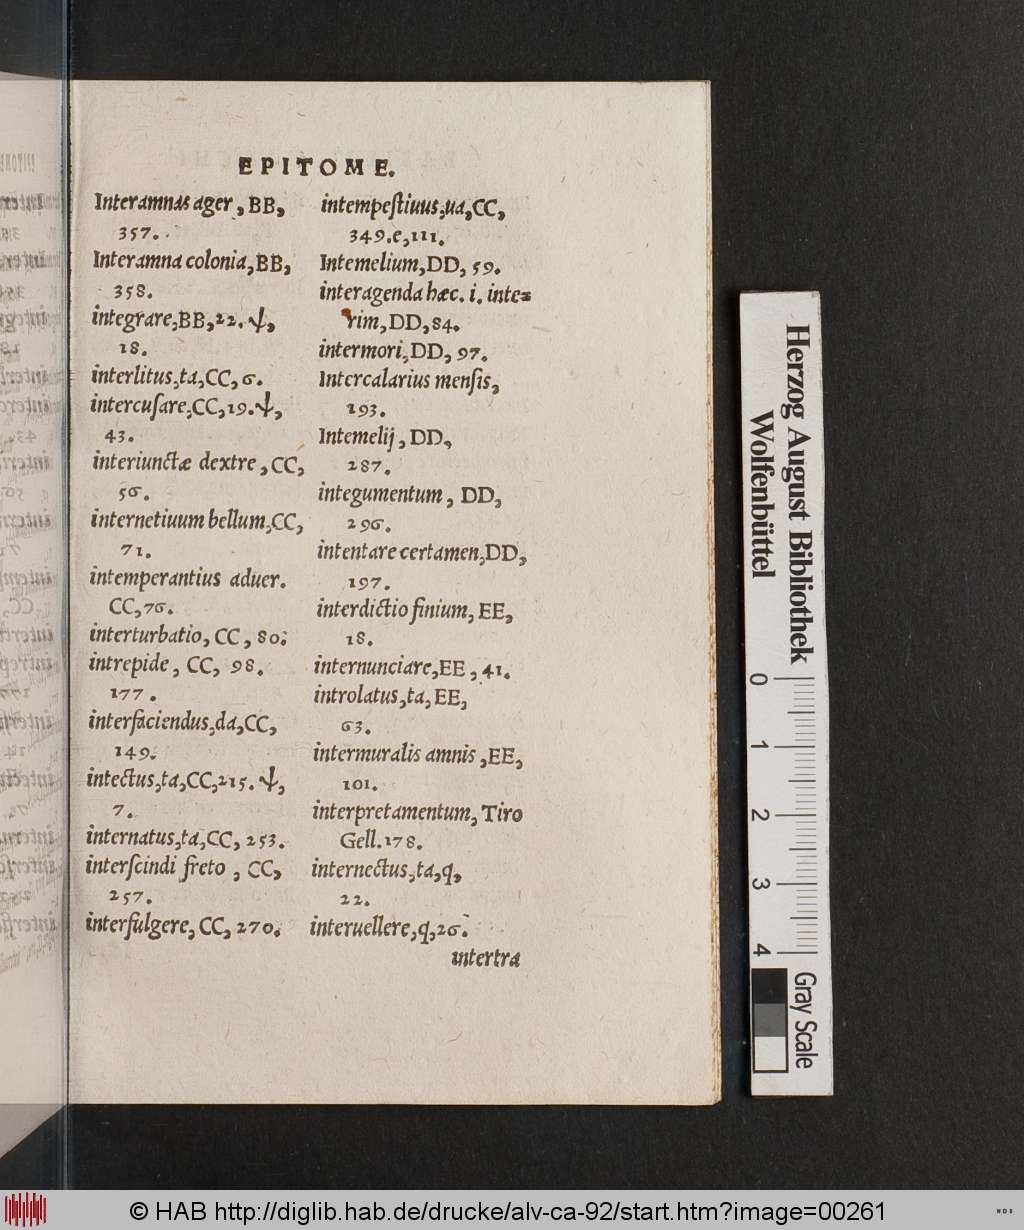 EPITOME.
Interamnas ager, BB,
357.
Interamna colonia, BB,
358.
integrare, BB, 22. ψ,
18.
interlitus, ta, CC, 6.
intercusare, CC, 19. ψ,
43.
interiunctæ dextre, CC,
56.
internetiuum bellum, CC,
71.
intemperantius aduer.
CC, 76.
interturbatio, CC, 80.
intrepide, CC, 98.
177.
interfaciendus, da, CC,
149.
intectus, ta, CC, 215. ψ,
7.
internatus, ta, CC, 253.
interscindi freto, CC,
257.
interfulgere, CC, 270.
intempestiuus, ua, CC,
349. e, 111.
Intemelium, DD, 59.
interagenda hæc. i. inte=
rim, DD, 84.
intermori, DD, 97.
Intercalarius mensis,
193.
Intemelij, DD,
287.
integumentum, DD,
296.
intentare certamen, DD,
197.
interdictio finium, EE,
18.
internunciare, EE, 41.
introlatus, ta, EE,
63.
intermuralis amnis, EE,
101.
interpretamentum, Tiro
Gell. 178.
internectus, ta, q,
22.
interuellere, q, 26.
intertra
Herzog August Bibliothek
Wolfenbüttel
0
1
2
3
4
Gray Scale
© HAB http://diglib.hab.de/drucke/alv-ca-92/start.htm?image=00261